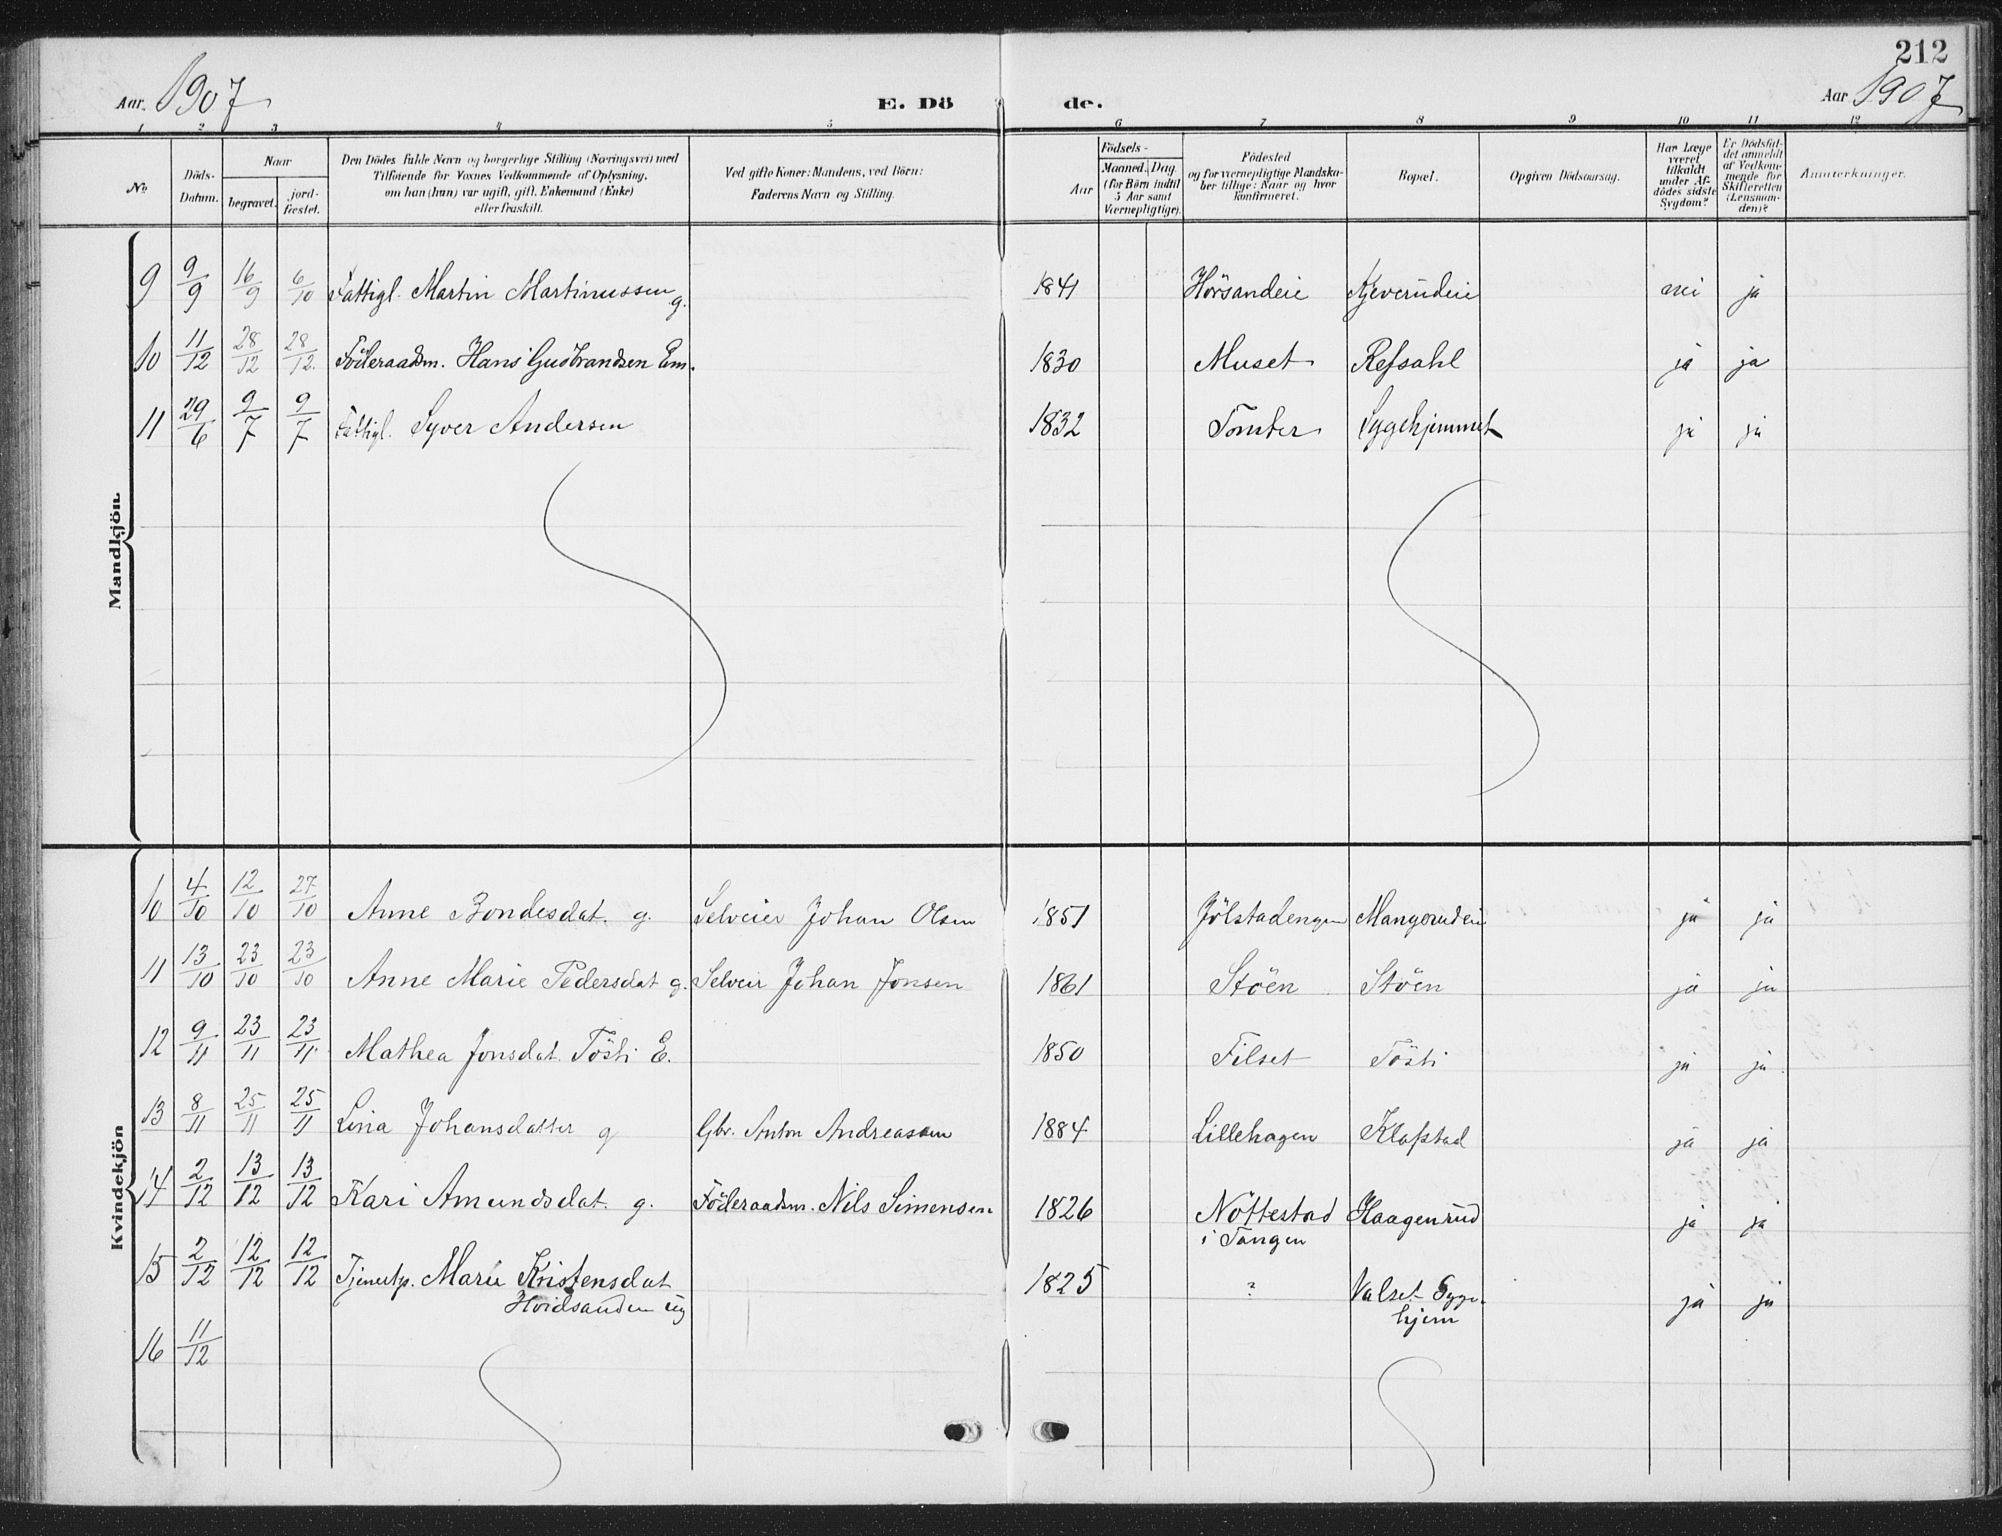 212
Aar. 1907
E. Dö
de.
Aar 1907
1 2 3 4 5 6 7 8 9 10 11 12
No.
Döds-Datum.
Naar
begravet.
jord-fæstet.
Den Dödes fulde Navn og borgerlige Stilling (Næringsvei) med
Tilföiende for Voxnes Vedkommende af Oplysning,
om han (hun) var ugift, gift, Enkemand (Enke)
eller fraskilt.
Ved gifte Koner: Mandens, ved Börn:
Faderens Navn og Stilling.
Födsels-
Aar
Maaned.
Dag
(for Börn indtil
5 Aar samt
Værnepligtige).
Födested
og for værnepligtige Mandska-
ber tillige: Naar og hvor
konfirmeret.
Bopæl.
Opgiven Dödsaarsag.
Har Læge
været
tilkaldt
under Af-
dödes sidste
Sygdom?
Er Dödsfal-
det anmeldt
af Vedkom-
mende for
Skifteretten
(Lensman-
den)?
Anmærkninger.
Mandkjön
9 9/9 16/9 6/10 Fattigl. Martin Martinussen g. 1841 Hörsandeie Kjeverudeie nei ja
10 11/12 28/12 28/12. Föderaadsm. Hans Gudbrandsen Em. 1830 Muset Refsahl ja ja
11 29/6 9/7 9/7 Fattigl. Syver Andersen 1832 Tomter Sygehjemmet ja ja
Kvindekjön
10 4/10 12/10 27/10 Anne Bondesdat. g. Selveier Johan Olsen 1851 Jölstadengen Mangerudeie ja ja
11 13/10 23/10 23/10 Anne Marie Pedersdat g. Selveier Johan Jonsen 1861 Stöen Stöen ja ja
12 9/11 23/11 23/11. Mathea Jonsdat. Tösti E. 1850 Filset Tösti ja ja
13 8/11 25/11 25/11 Lina Johansdatter g Gbr. Anton Andreassen 1884 Lillehagen Klafstad ja ja
14 2/12 13/12 13/12 Kari Amundsdat. g. Föderaadsm. Nils Simensen 1826 Nöttestad Haagenrud ja ja
i Tangen
15 2/12 12/12 12/12 Tjenestp. Marie Kristensdat 1825 ? Valset Syge- ja ja
Hvidsanden ug hjem
16 11/12